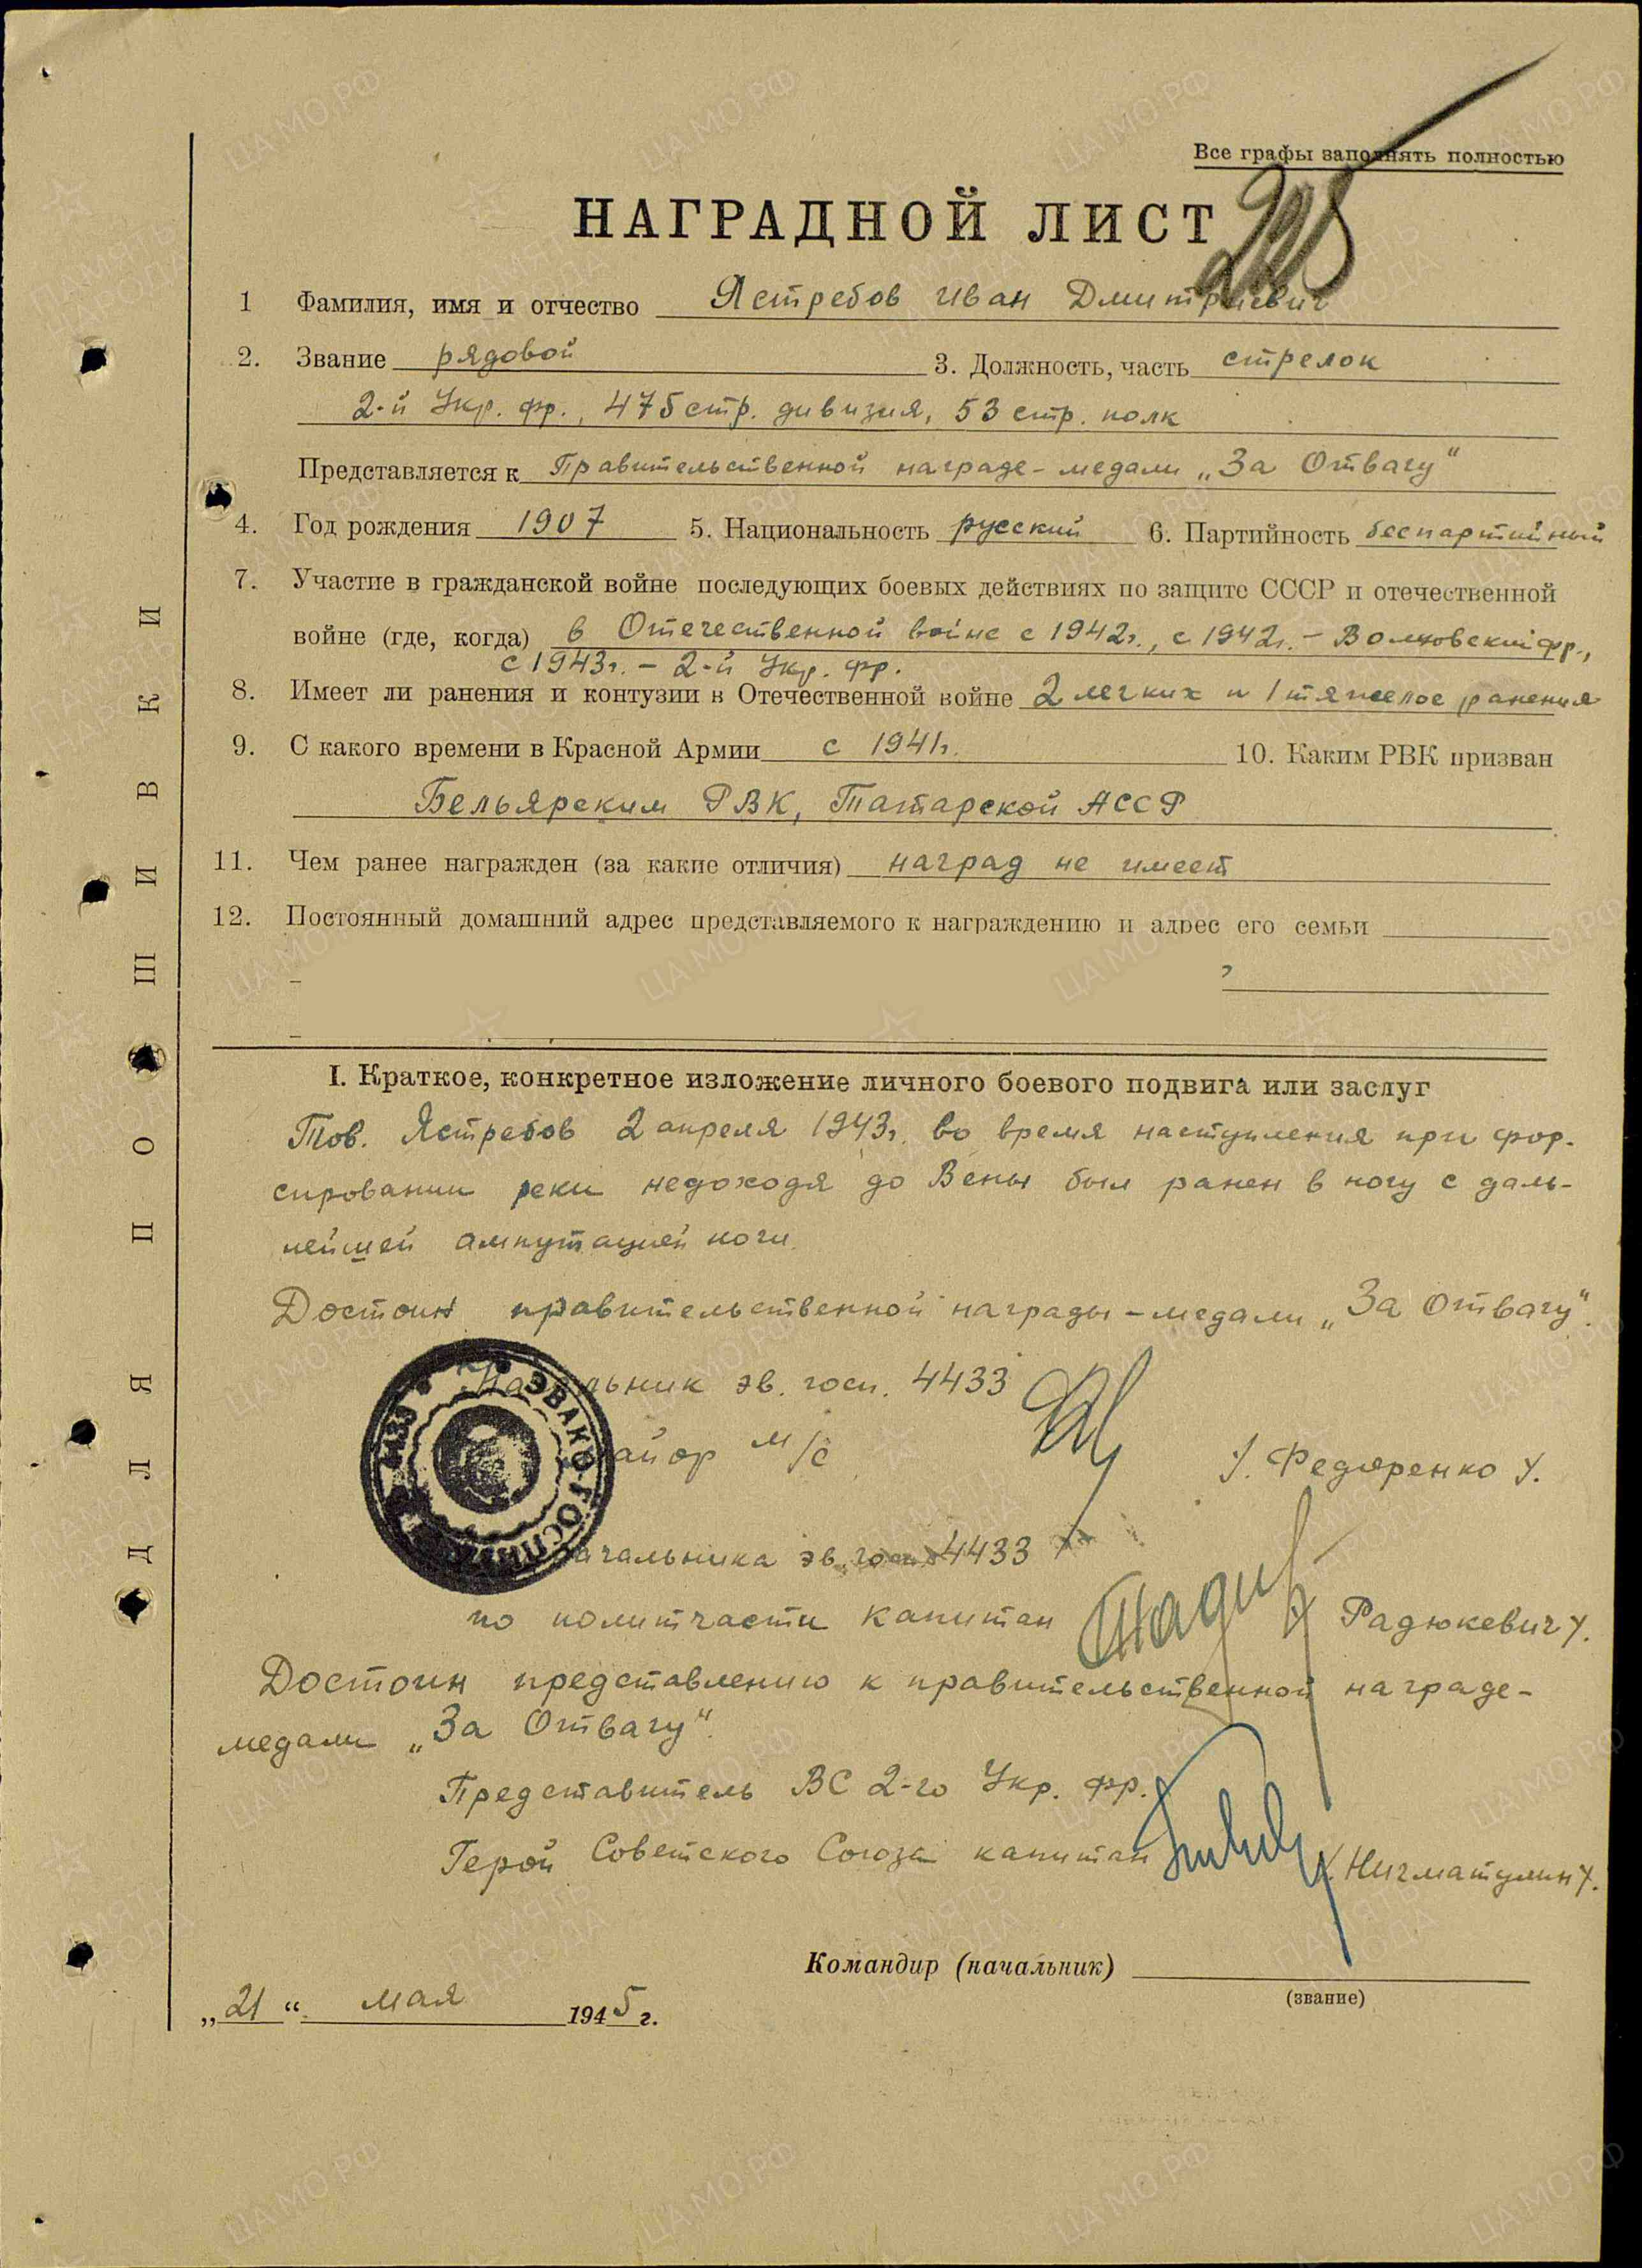 Все графы заполнять полностью
НАГРАДНОЙ ЛИСТ
1 Фамилия, имя и отчество Ястребов Иван Дмитриевич
2. Звание рядовой 3. Должность, часть стрелок
2-й Укр. фр., 475 стр. дивизия, 53 стр. полк
Представляется к Правительственной награде - медали „За Отвагу"
4. Год рождения 1907 5. Национальность русский 6. Партийность беспартийный
7. Участие в гражданской войне последующих боевых действиях по защите СССР и отечественной
войне (где, когда) в Отечественной войне с 1942г., с 1942г. - Волховский фр.,
с 1943г. - 2-й Укр. фр.
8. Имеет ли ранения и контузии в Отечественной войне 2 легких и 1 тяжелое ранения
9. С какого времени в Красной Армии с 1941г. 10. Каким РВК призван
Бельярским РВК, Татарской АССР
11. Чем ранее награжден (за какие отличия) наград не имеет
12. Постоянный домашний адрес представляемого к награждению и адрес его семьи
I. Краткое, конкретное изложение личного боевого подвига или заслуг
Тов. Ястребов 2 апреля 1943г. во время наступления при фор-
сировании реки недоходя до Вены был ранен в ногу с даль-
нейшей ампутацией ноги.
Достоин правительственной награды - медали „За Отвагу".
Начальник эв. госп. 4433
майор м/с Федяренко
начальника эв. госп. 4433
по политчасти капитан Радюкевич
Достоин представлению к правительственной награде-
медали „За Отвагу".
Представитель ВС 2-го Укр. фр.
Герой Советского Союза капитан Нигматулин
Командир (начальник)
(звание)
„21" мая 1945г.
ДЛЯ ПОДШИВКИ
ЭВАКО-ГОСПИТ 4433
ЦА МО РФ
ПАМЯТЬ НАРОДА